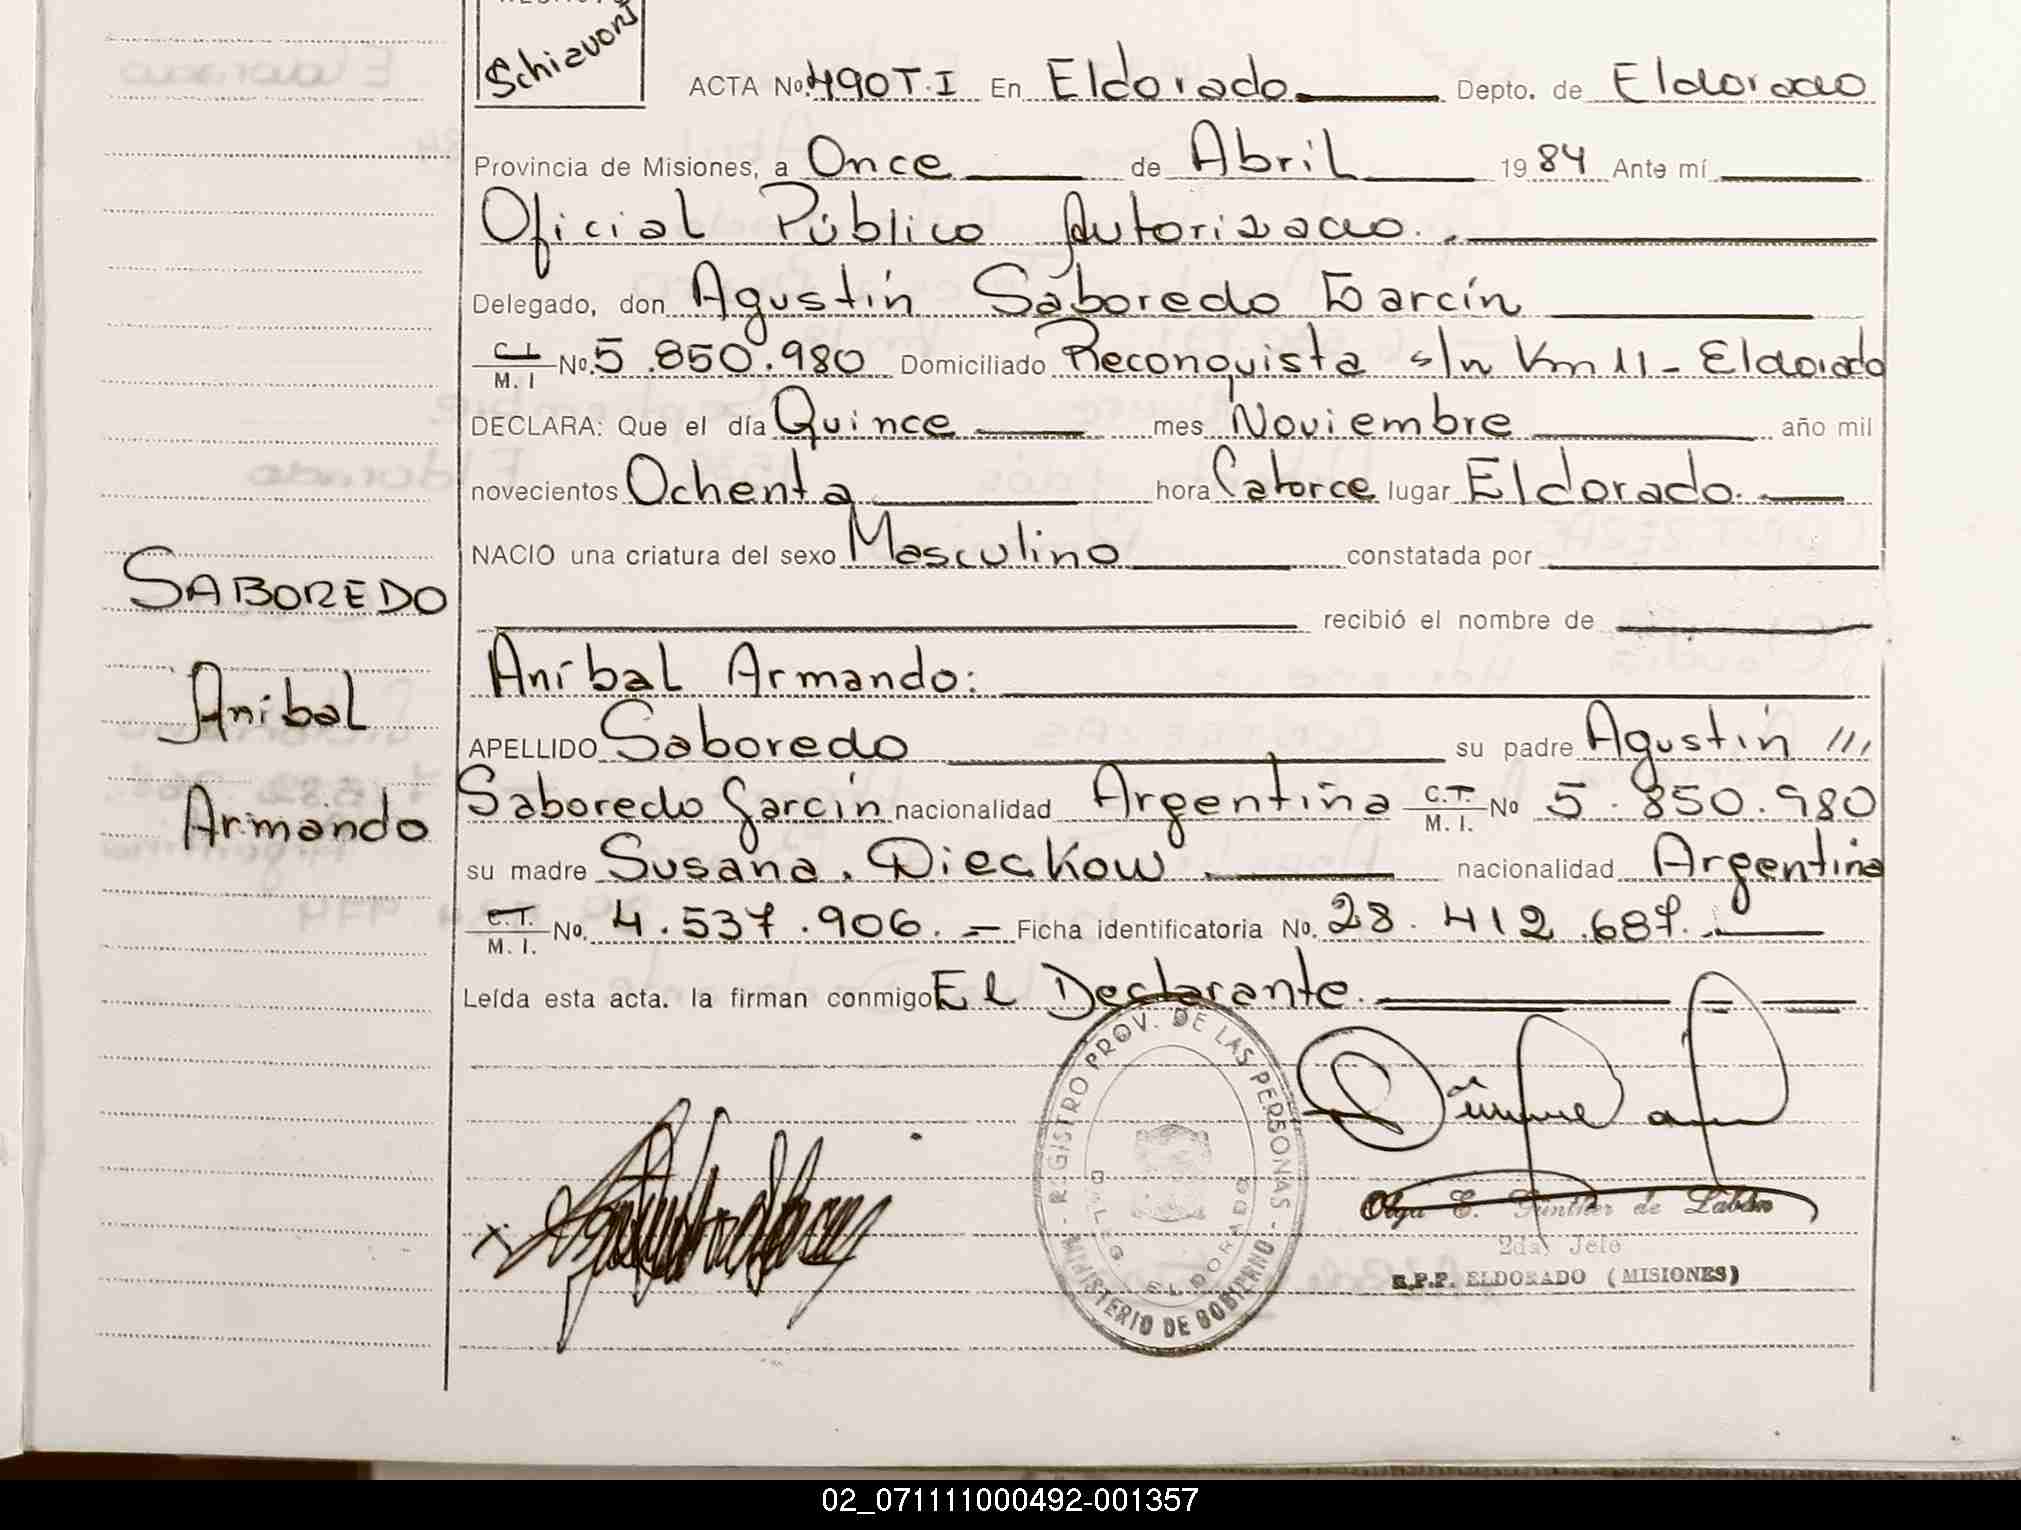 Schiavoni
ACTA No. 490 T.I En Eldorado Depto. de Eldorado
Provincia de Misiones, a Once de Abril 1984 Ante mí
Oficial Público Autorizado.
Delegado, don Agustín Saboredo Garcín
C.I. M. I No. 5.850.980 Domiciliado Reconquista s/n Km 11 - Eldorado
DECLARA: Que el día Quince mes Noviembre año mil
novecientos Ochenta hora Catorce lugar Eldorado.
NACIO una criatura del sexo Masculino constatada por
recibió el nombre de
SABOREDO
Aníbal Armando:
Anibal
APELLIDO Saboredo su padre Agustín ///
Saboredo Garcín nacionalidad Argentina C.I. M. I. No 5.850.980
Armando
su madre Susana. Dieckow nacionalidad Argentina
C.I. M. I. No. 4.537.906. = Ficha identificatoria No. 28.412.687.
Leída esta acta. la firman conmigo El Declarante.
REGISTRO PROV. DE LAS PERSONAS - MINISTERIO DE GOBIERNO -
DELEG. ELDORADO
Olga E. Günther de
2da. Jefe
R.P.P. ELDORADO (MISIONES)
02_071111000492-001357